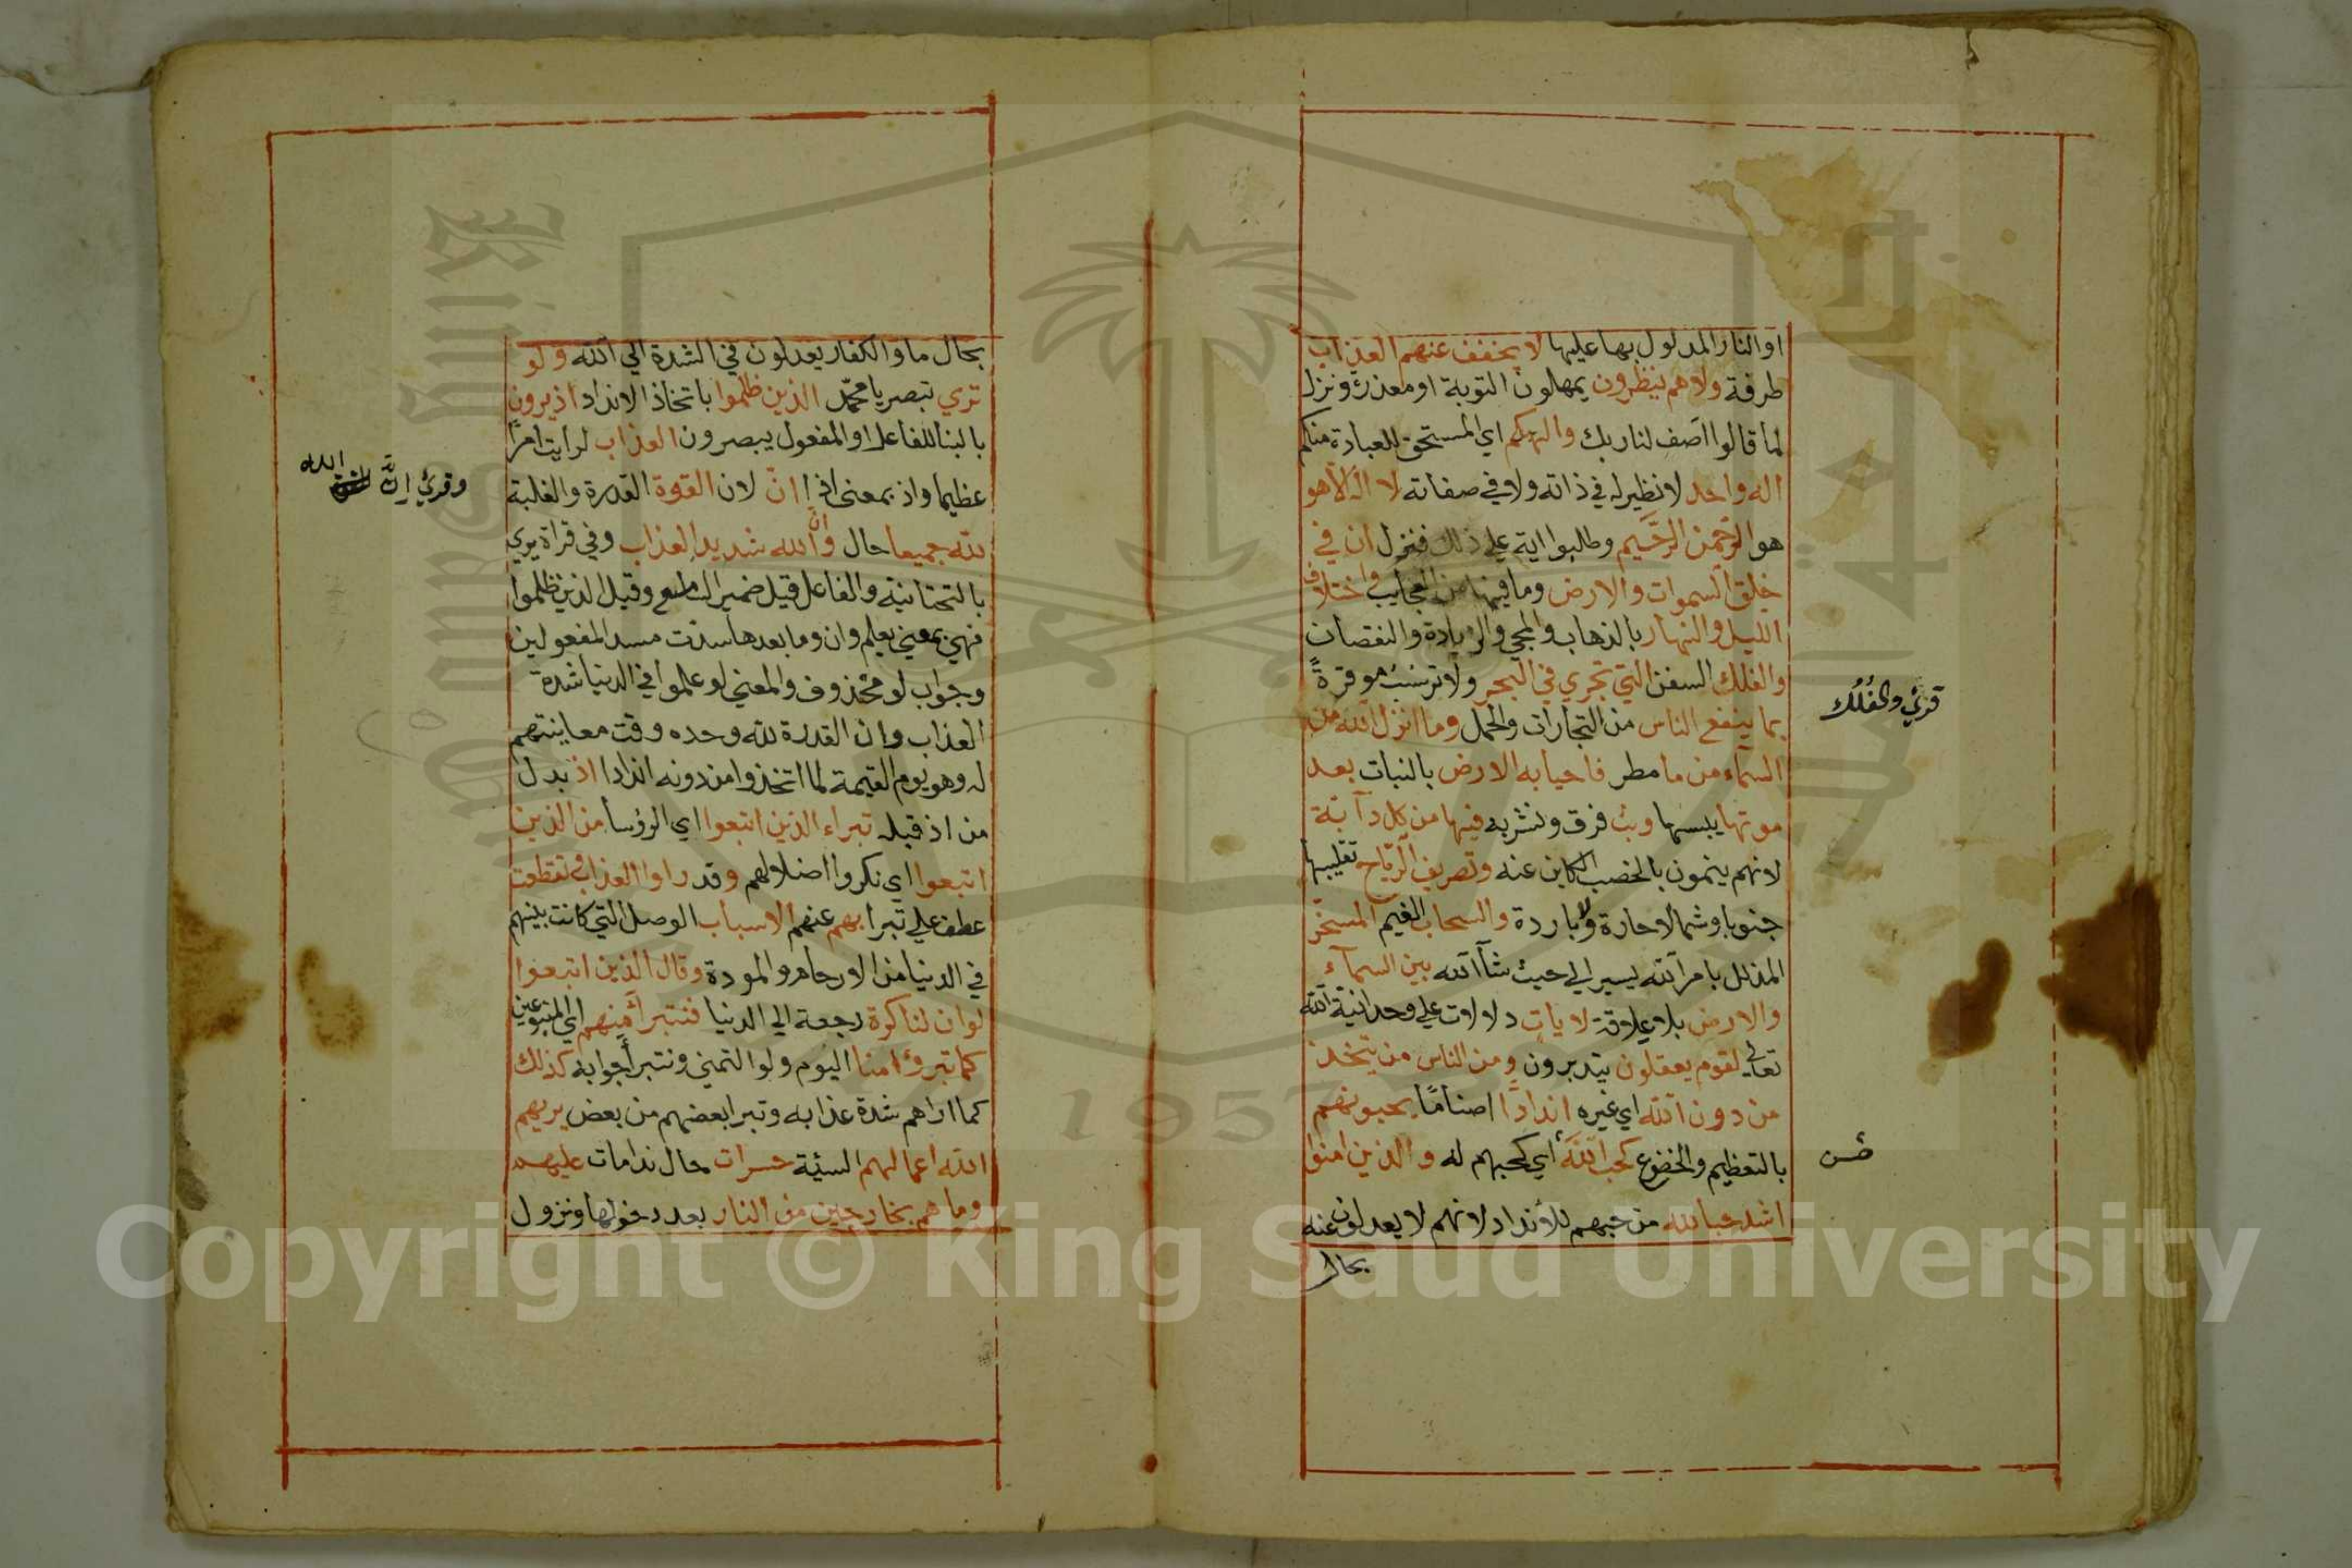 او النار المدلول بها عليها لا يخفف عنهم العذاب
طرفة ولا هم ينظرون يمهلون التوبة او معذرة ونزل
لما قالوا اصف لنا ربك والهكم اي المستحق للعبادة منكم
اله واحد لا نظير له في ذاته ولا في صفاته لا اله الا هو
هو الرحمن الرحيم وطلبوا اية علي ذلك فنزل ان في
خلق السموات والارض وما فيها من العجايب واختلاف
الليل والنهار بالذهاب والمجي والزيادة والنقصان
والفلك السفن التي تجري في البحر ولا ترسب موقرةً
بما ينفع الناس من التجارات والحمل وما انزل الله من
السماء من ما مطر فاحيا به الارض بالنبات بعد
موتها يبسها وبث فرق ونشر به فيها من كل دآبة
لانهم ينمون بالخصب الكاين عنه وتصريف الرياح تقليبها
جنوبا وشمالا حارة وباردة والسحاب الغيم المسخر
المذلل بامر الله يسير الي حيث شآ الله بين السمآء
والارض بلا علاقة لايات دلالات علي وحدانية الله
تعالي لقوم يعقلون يتدبرون ومن الناس من يتخذ
من دون الله اي غيره اندادًا اصنامًا يحبونهم
بالتعظيم والخضوع كحب الله اي كحبهم له والذين امنوا
اشد حبا لله من حبهم للأنداد لانهم لا يعدلون عنه
بحال
قرئ والفُلُك
بحال ما والكفار يعدلون في الشدة الي الله ولو
تري تبصر يا محمد الذين ظلموا باتخاذ الانداد اذ يرون
بالبنا للفاعل او المفعول يبصرون العذاب لرايت امرًا
عظيما واذ بمعني اذا انّ لان القوة القدرة والغلبة
لله جميعا حال وأنّ الله شديد العذاب وفي قراة يري
بالتحتانية والفاعل قيل ضمير السامع وقيل الذين ظلموا
فهي بمعني يعلم وان وما بعدها سدّت مسد المفعولين
وجواب لو محذوف والمعني لو علموا في الدنيا شدة
العذاب وان القدرة لله وحده وقت معاينتهم
له وهو يوم القيمة لما اتخذوا من دونه اندادا اذ بدل
من اذ قبله تبراء الذين اتبعوا اي الرؤسا من الذين
اتبعوا اي نكروا اضلالهم وقد راوا العذاب وتقطعت
عطف علي تبرا بهم عنهم الاسباب الوصل التي كانت بينهم
في الدنيا من الارحام والمودة وقال الذين اتبعوا
لو ان لنا كرة رجعة الي الدنيا فنتبرأ منهم اي المتبوعين
كما تبرؤا منا اليوم ولو التمني ونتبرأ جوابه كذلك
كما اراهم شدة عذابه وتبرا بعضهم من بعض يريهم
الله اعمالهم السيئة حسرات حال ندامات عليهم
وما هم بخارجين من النار بعد دخولها ونزول
وقرئ إنَّ الله
Copyright © King Saud University
1957